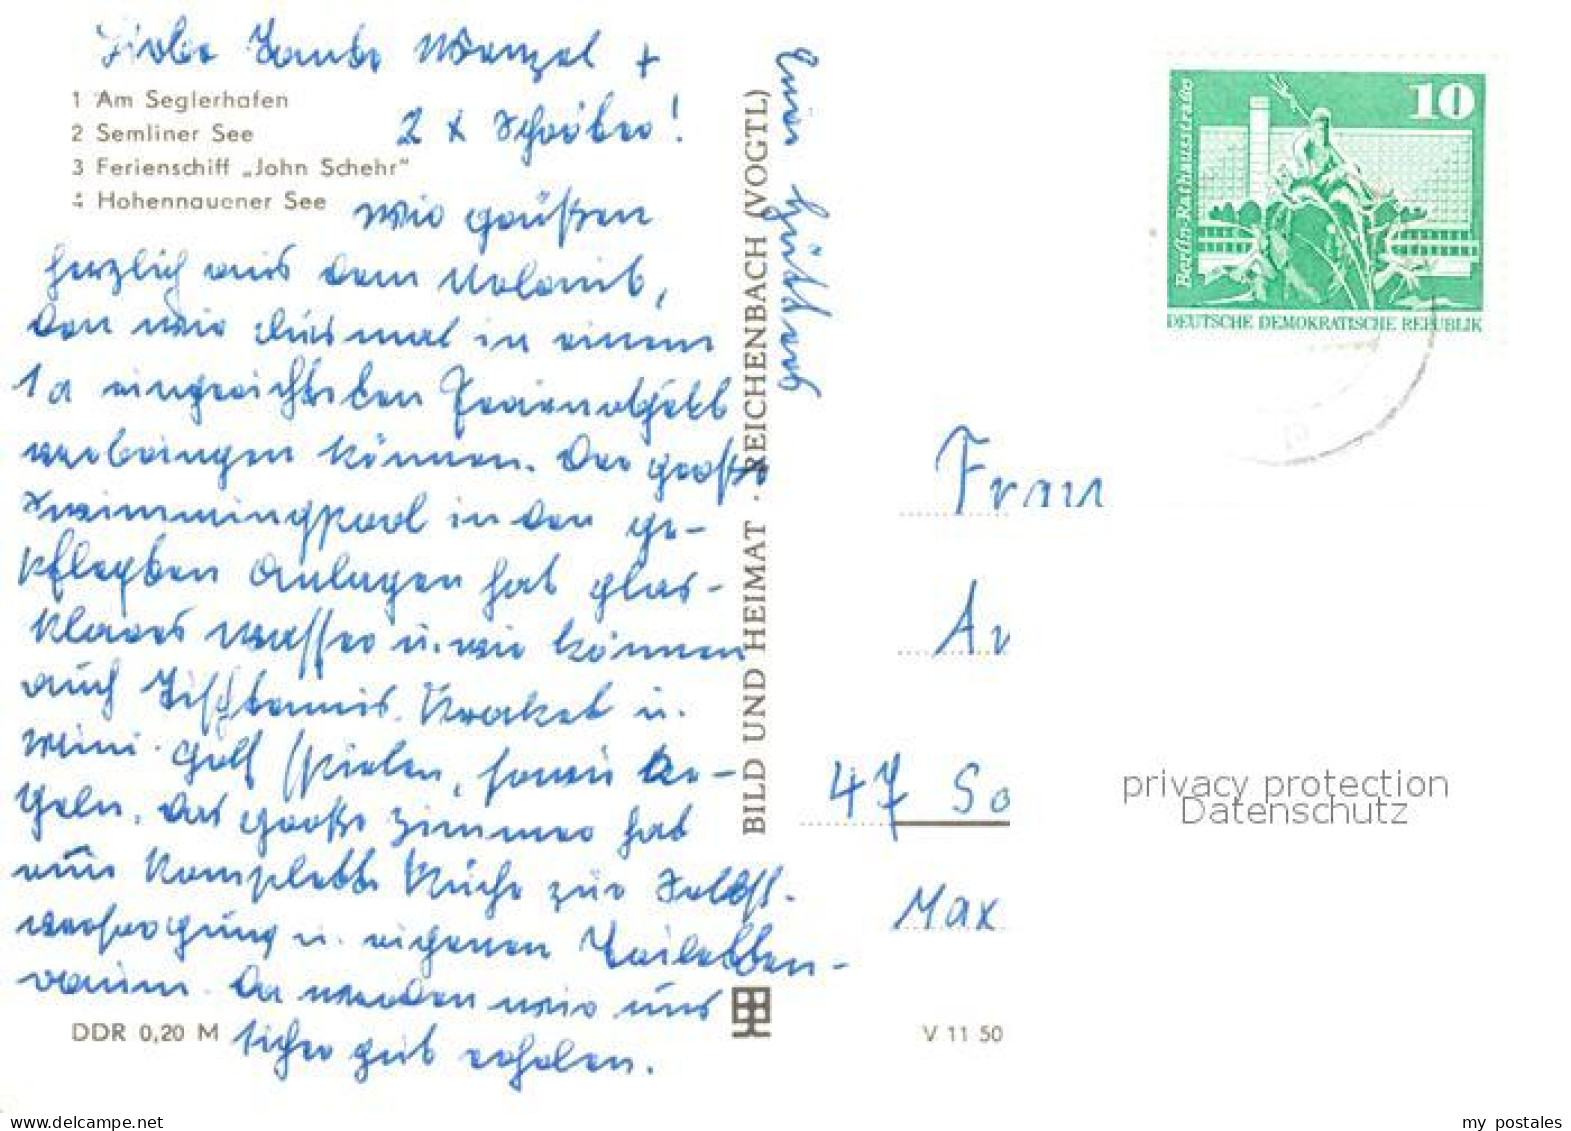 Liebe Tante Wenzel +
2 x Schreiber!
1 Am Seglerhafen
2 Semliner See
3 Ferienschiff „John Schehr"
4 Hohennauener See
Wir grüßen
herzlich aus dem Urlaub,
den wir diesmal in einem
1a eingerichteten Ferienobjekt
verbringen können. Der große
Swimmingpool in den ge-
pflegten Anlagen hat glas-
klares Wasser u. wir können
auch Tischtennis, Kroket u.
Mini-Golf spielen, sowie Ke-
geln. Das große Zimmer hat
eine komplette Küche zur Selbst-
versorgung u. eigenen Toiletten-
raum. Da werden wir uns
sicher gut erholen.
DDR 0,20 M
BILD UND HEIMAT · REICHENBACH (VOGTL)
V 11 50
Berlin-Rathausstraße
10
DEUTSCHE DEMOKRATISCHE REPUBLIK
Frau
47 So
Max
privacy protection
Datenschutz
my_postales